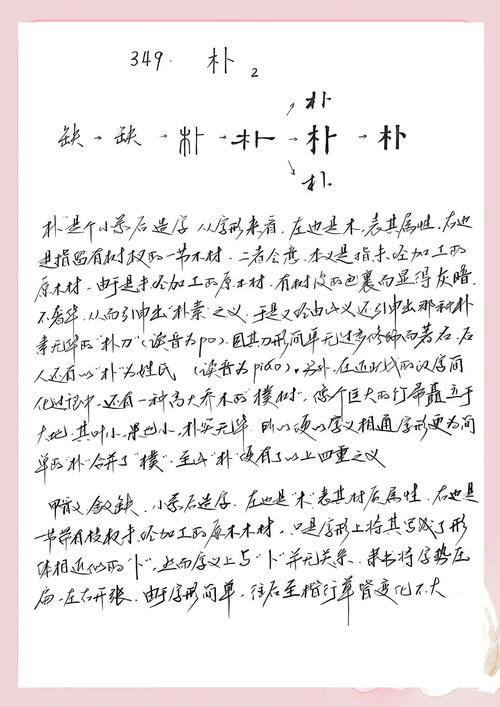 349. 朴 2
朴
缺 → 缺 → 朴 → 朴 → 朴 → 朴
朴
朴"是个小篆后造字 从字形来看，左边是木，表其属性，右边
是指留有树杈的一节木材，二者会意，本义是指未经加工的
原木材，由于是未经加工的原木材，有树皮的包裹而显得灰暗，
不奢华，从而引申出"朴素"之义，于是又经由此义还引申出那种朴
素无华的"朴刀"（读音为po）因其刀形简单无过多修饰而著名，后
人还有以"朴"为姓氏 （读音为piáo）。另外，在近代的汉字简
化过程中，还有一种高大乔木的"樸树"，像个巨大的 矗立于
大地，其叶小，果也小，朴实无华，所以便以字义相通字形更为简
单的"朴"合并了"樸"，至此"朴"便有了以上四重之义
甲骨文、金文缺，小篆后造字，左边是"木"表其材质属性，右边是
一节带有枝杈未经加工的原木木材，只是字形上将其写成了形
体相近似的"卜"，然而字义上与"卜"并无关系，隶书将字势压
扁，左右开张，由于字形简单，往后至楷行草皆变化不大